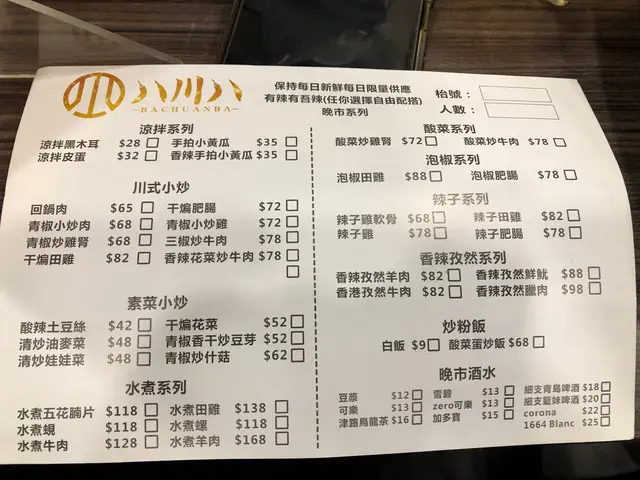 八川八
—BACHUANBA—
保持每日新鮮每日限量供應
有辣有吾辣(任你選擇自由配搭)
晚市系列
枱號：
人數：
涼拌系列
涼拌黑木耳 $28 手拍小黃瓜 $35
涼拌皮蛋 $32 香辣手拍小黃瓜 $35
川式小炒
回鍋肉 $65 干煸肥腸 $72
青椒小炒肉 $68 青椒小炒雞 $72
青椒炒雞腎 $68 三椒炒牛肉 $78
干煸田雞 $82 香辣花菜炒牛肉 $78
素菜小炒
酸辣土豆絲 $42 干煸花菜 $52
清炒油麥菜 $48 青椒香干炒豆芽 $52
清炒娃娃菜 $48 青椒炒什菇 $62
水煮系列
水煮五花腩片 $118 水煮田雞 $138
水煮蜆 $118 水煮螺 $118
水煮牛肉 $128 水煮羊肉 $168
酸菜系列
酸菜炒雞腎 $72 酸菜炒牛肉 $78
泡椒系列
泡椒田雞 $88 泡椒肥腸 $78
辣子系列
辣子雞軟骨 $68 辣子田雞 $82
辣子雞 $78 辣子肥腸 $78
香辣孜然系列
香辣孜然羊肉 $82 香辣孜然鮮魷 $88
香港孜然牛肉 $82 香辣孜然臘肉 $98
炒粉飯
白飯 $9 酸菜蛋炒飯 $68
晚市酒水
豆漿 $12 雪碧 $13 細支青島啤酒 $18
可樂 $13 zero可樂 $13 細支藍妹啤酒 $20
津路烏龍茶 $16 加多寶 $15 corona $22
1664 Blanc $25